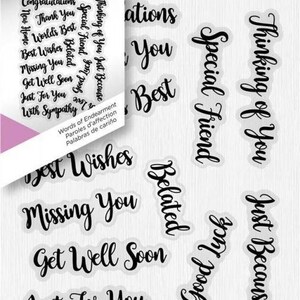 Congratulations
Thank You
New Home
World's Best
Best Wishes
Missing You
Get Well Soon
Just For You
With Sympathy
Belated
Special Friend
Good Luck
Thinking of You
Just Because
Words of Endearment
Paroles d'affection
Palabras de cariño
ations
You
Best
Special Friend
Thinking of You
Best Wishes
Missing You
Get Well Soon
Belated
Good Luck
Just Becau
Just For You